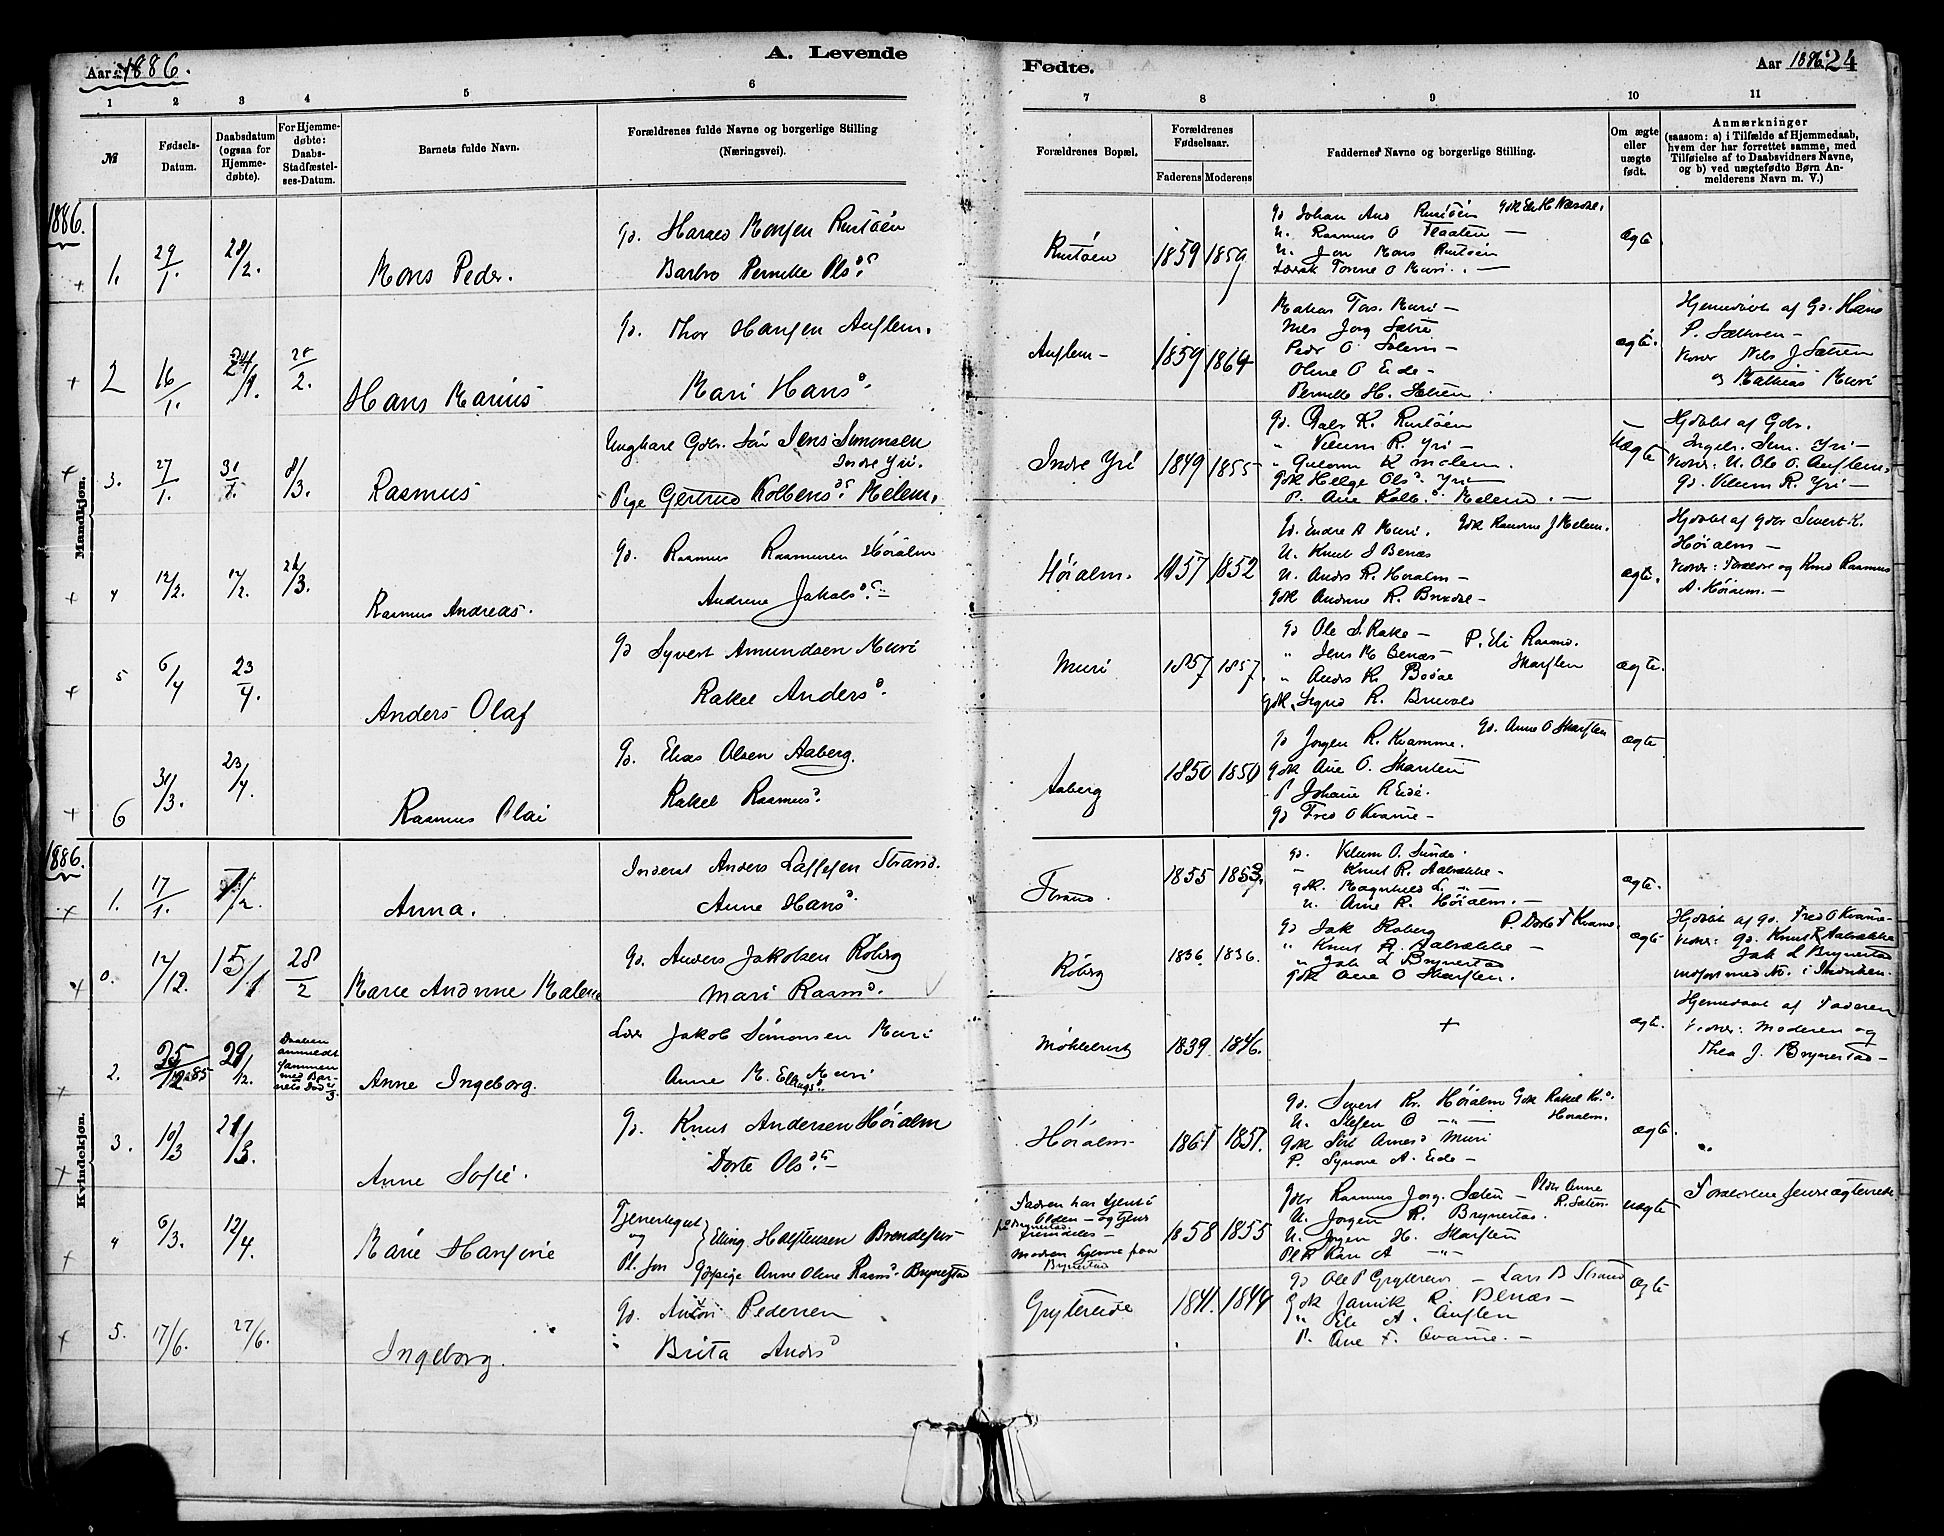 Aar 1886.
A. Levende
Fødte.
Aar 1886. 24
1 2 3 4 5 6 7 8 9 10 11
№
Fødsels-
Datum.
Daabsdatum
(ogsaa for
Hjemme-
døbte).
For Hjemme-
døbte:
Daabs-
Stadfæstel-
ses-Datum.
Barnets fulde Navn.
Forældrenes fulde Navne og borgerlige Stilling
(Næringsvei).
Forældrenes Bopæl.
Forældrenes
Fødselsaar.
Faderens Moderens
Faddernes Navne og borgerlige Stilling.
Om ægte
eller
uægte
født.
Anmærkninger
(saasom: a) i Tilfælde af Hjemmedaab,
hvem der har forrettet samme, med
Tilføielse af to Daabsvidners Navne,
og b) ved uægtefødte Børn An-
melderens Navn m. V.)
1886.
Mandkjøn.
1. 29/1. 28/2. Mons Peder.
Gd. Harald Monsen Rustøen
Barbro Pernille Olsd.
Rustøen 1859 1859
Gd Johan And Rustøen
U. Rasmus O Flaaten —
U. Jon Mons Rustøen
Tomine O Muri. —
ægte
2 16/1. 24/1. 28/2. Hans Marius
Gd. Thor Hansen Auflem.
Mari Hansd.
Auflem — 1859 1864
Mathias Tors. Muri —
Nils Jorg Sætre
Peder O Solem —
Oline O Eide —
Pernille H. Sætren
ægte.
Hjemmedøbt af Gd. Hans
P. Sætren —
Vidner Nils J Sætren
og Mathias Muri
3. 27/1. 31/1. 8/3. Rasmus
Ungkarl Gdbr. Søn Jens Simonsen
Indre Yri.
Pige Gertrud Kolbensd. Melem.
Indre Yri 1849 1855
Gd. K. Rustøen
" Villum R. Yri —
" K Melem.
Gdk Helge Olsd. Yri
P. Ane Kolb.d Melem. —
Uægte
Hjdøbt af Gdbr.
Ingebr. Sim. Yri —
Vidner: U. Ole O. Auflem.
Gd. Villum R. Yri —
4 12/2. 17/2. 28/3. Rasmus Andreas.
Gd. Rasmus Rasmussen Høialm
Andrine Jakobsd. —
Høialm. 1857 1852
Gd. Endre A Muri. Gdk Rasmine J Melem.
U. Knut S Benæs
U. Anders R. Høialm —
Gdk Andrine R. —
ægte.
Hjdøbt af Gdbr Sivert K.
Høialm —
Vidner: Forældre og Knud Rasmus
A. Høialm. —
5 6/4 23/4. Anders Olaf
Gd Syvert Amundsen Muri
Rakel Andersd.
Muri 1857 1857.
Gd Ole S. Rake — P. Eli Rasmd.
" Jens M Benæs — Skarsten
" Anders R.
Gdk. Sigrid R. Bruvold
ægte.
6 31/3. 23/4. Rasmus Olai
Gd. Elias Olsen Aaberg.
Rakel Rasmusd.
Aaberg 1850 1850
Gd Jorgen R. Kvamme. Gd. Anne O Skarsten
Gdk Ane O. Skarsten
P Johane R Eide.
Gd Fred O Kvamme —
ægte
1886.
Kvindekjøn.
1. 17/1. 7/2. Anna.
Inderst Anders Strand.
Anne Hansd.
Strand. 1855 1853.
Gd. Villum O. Sunde
" Knut R. Aabrække —
Gdk. Magnhild L. " —
U. Arne R. Høialm. —
ægte.
0. 12/12. 15/1 28/2 Marie Andrine Malene
Gd. Anders Jakobsen Roberg
Mari Rasmd.
Roberg 1836. 1836.
Gd Jak Roberg P. Dorte F Kvame.
" Knut R. Aabrække —
" Jak L Brynestad
Gdk Ane O Skarsten.
ægte
Hjdøbt af Gd. Fred O Kvame —
Vidner: Gd. Knut R Aabrække
Jak L Brynestad
2. 25/12 85 29/12. Daaben
anmeldt
sammen
med Bar-
nets Død
Anne Ingeborg.
Lærer Jakob Simonsen Muri
Anne M. Ellingsd. Muri
1839. 1846.
+
ægte.
Hjemmedøbt af Faderen
Vidner: Moderen og
Thea J. Brynestad —
3. 10/3 21/3. Anne Sofie.
Gd. Knut Andersen Høialm
Dorte Olsd. —
Høialm 1861 1857.
Gd. Sivert Kr. Høialm Gdk Rakel Kr.d
Høialm.
U. Steffen O " —
Gdk Siri Arnesd Muri
P. Synove A. Eide —
ægte.
4 6/3. 12/4. Marie Hansine
Tjenestegut
og
Elling Halstensen
Gdpige Anne Oline Rasmd. Brynestad
Fadren har tjent i
Olden — og tjener
fremdeles —
Modren hjemme paa
Brynestad
1858 1855
Gdbr Rasmus Jorg. Sætren — Anne
R. Sætren
U. Jorgen R. Brynestad.
U. Jorgen H. Skarsten
Kari A "
uægte
Forældrene senere ægteviede
5. 17/6. 27/6. Ingeborg.
Gd. Anton Pedersen
Brita Andsd
Gryterede 1841. 1844
Gd Ole P Gryterede — Lars B Strand
Gdk Jannik R. Benæs —
" Eli A. Auflem
P. Ane F. Qvamme. —
ægte